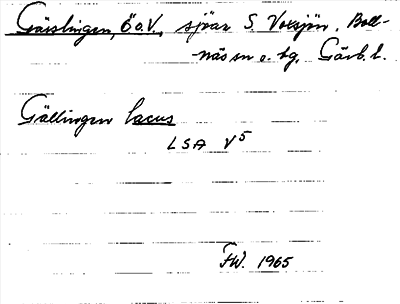 Gäislingen, Ö o.V., sjöar S. Voxsjön, Boll-
näs sn o. tg, Gävb. l.
Gällingen lacus
LSA V5
FW. 1965